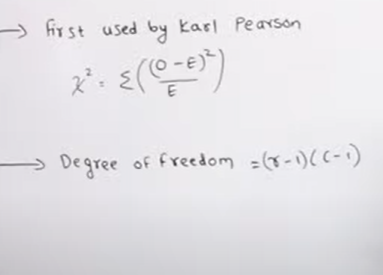 → first used by Karl Pearson
χ² = Σ((O-E)²/E)
→ Degree of freedom =(r-1)(c-1)